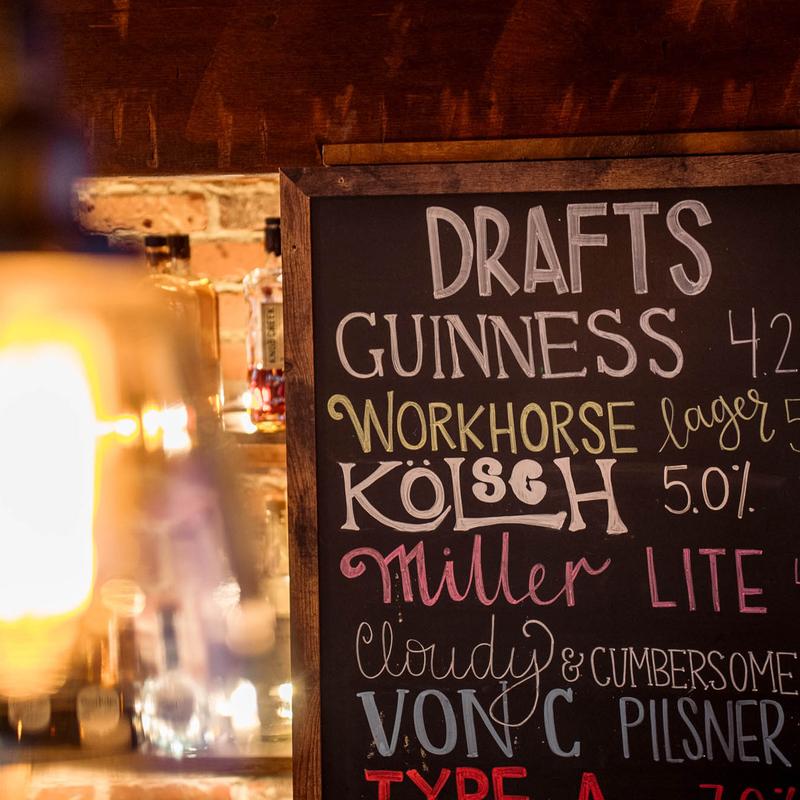 DRAFTS
GUINNESS 4.2
WORKHORSE lager 5
KÖLSCH 5.0%
Miller LITE 4
Cloudy & CUMBERSOME
VON C PILSNER
TYPE A 7.0%
KNOB CREEK